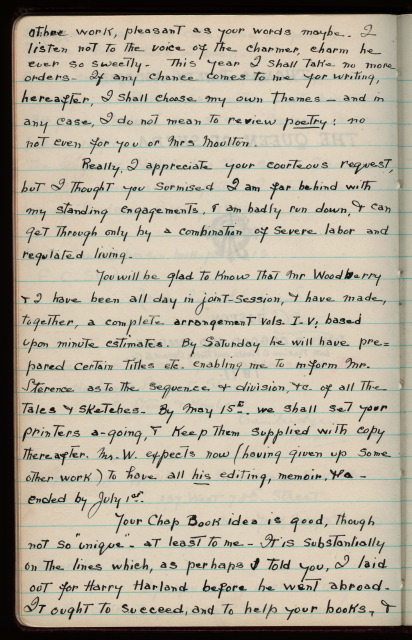 other work, pleasant as your words maybe. I
listen not to the voice of the charmer, charm he
ever so sweetly. This year I shall take no more
orders. If any chance comes to me for writing,
hereafter, I shall choose my own themes – and in
any case, I do not mean to review poetry; no
not even for you or Mrs Moulton.
Really, I appreciate your courteous request,
but I thought you surmised I am far behind with
my standing engagements, & am badly run down, & can
get through only by a combination of severe labor and
regulated living.
You will be glad to know that Mr Woodberry
& I have been all day in joint-session, & have made,
together, a complete arrangement vols. I-V; based
upon minute estimates. By Saturday he will have pre=
pared certain titles etc. enabling me to inform Mr.
as to the sequence & division, &c. of all the
Tales & Sketches. By May 15th. we shall set your
printers a-going, & keep them supplied with copy
thereafter. Mr. W. expects now (having given up some
other work) to have all his editing, memoir, &c -
ended by July 1st.
Your Chap Book idea is good, though
not so "unique" - at least to me - It is substantially
on the lines which, as perhaps I told you, I laid
out for Harry Harland before he went abroad.
It ought to succeed, and to help your books, &